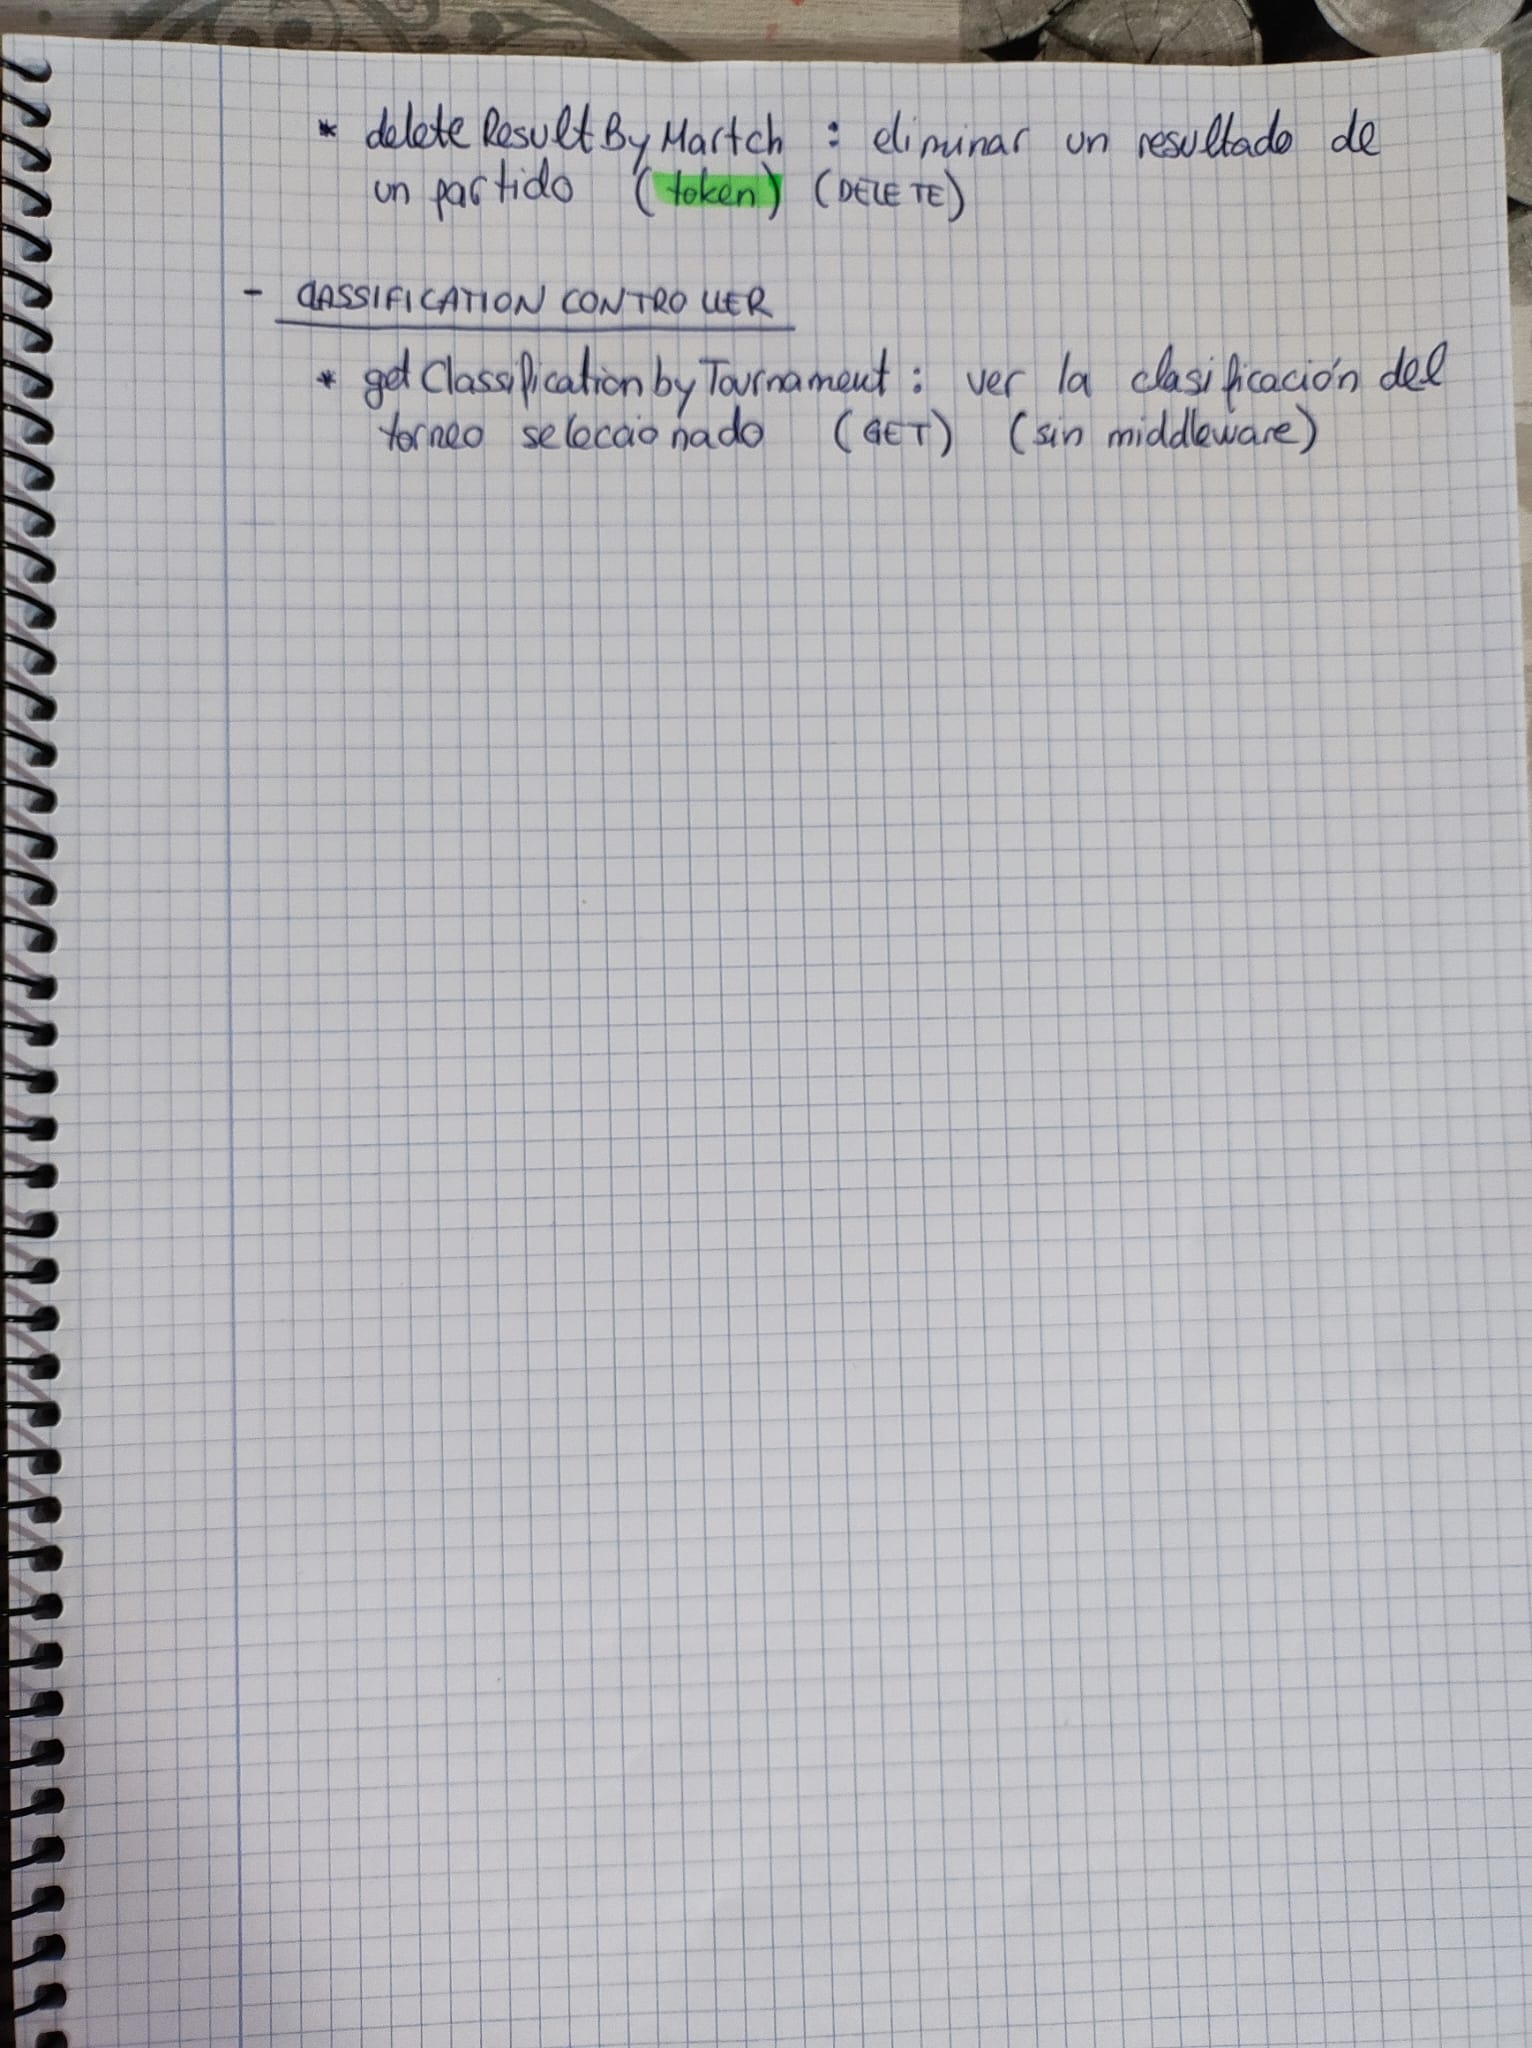 * deleteResultByMartch : eliminar un resultado de
un partido (token) (DELETE)
- CLASSIFICATION CONTROLLER
* getClassificationbyTournament : ver la clasificación del
torneo seleccionado (GET) (sin middleware)